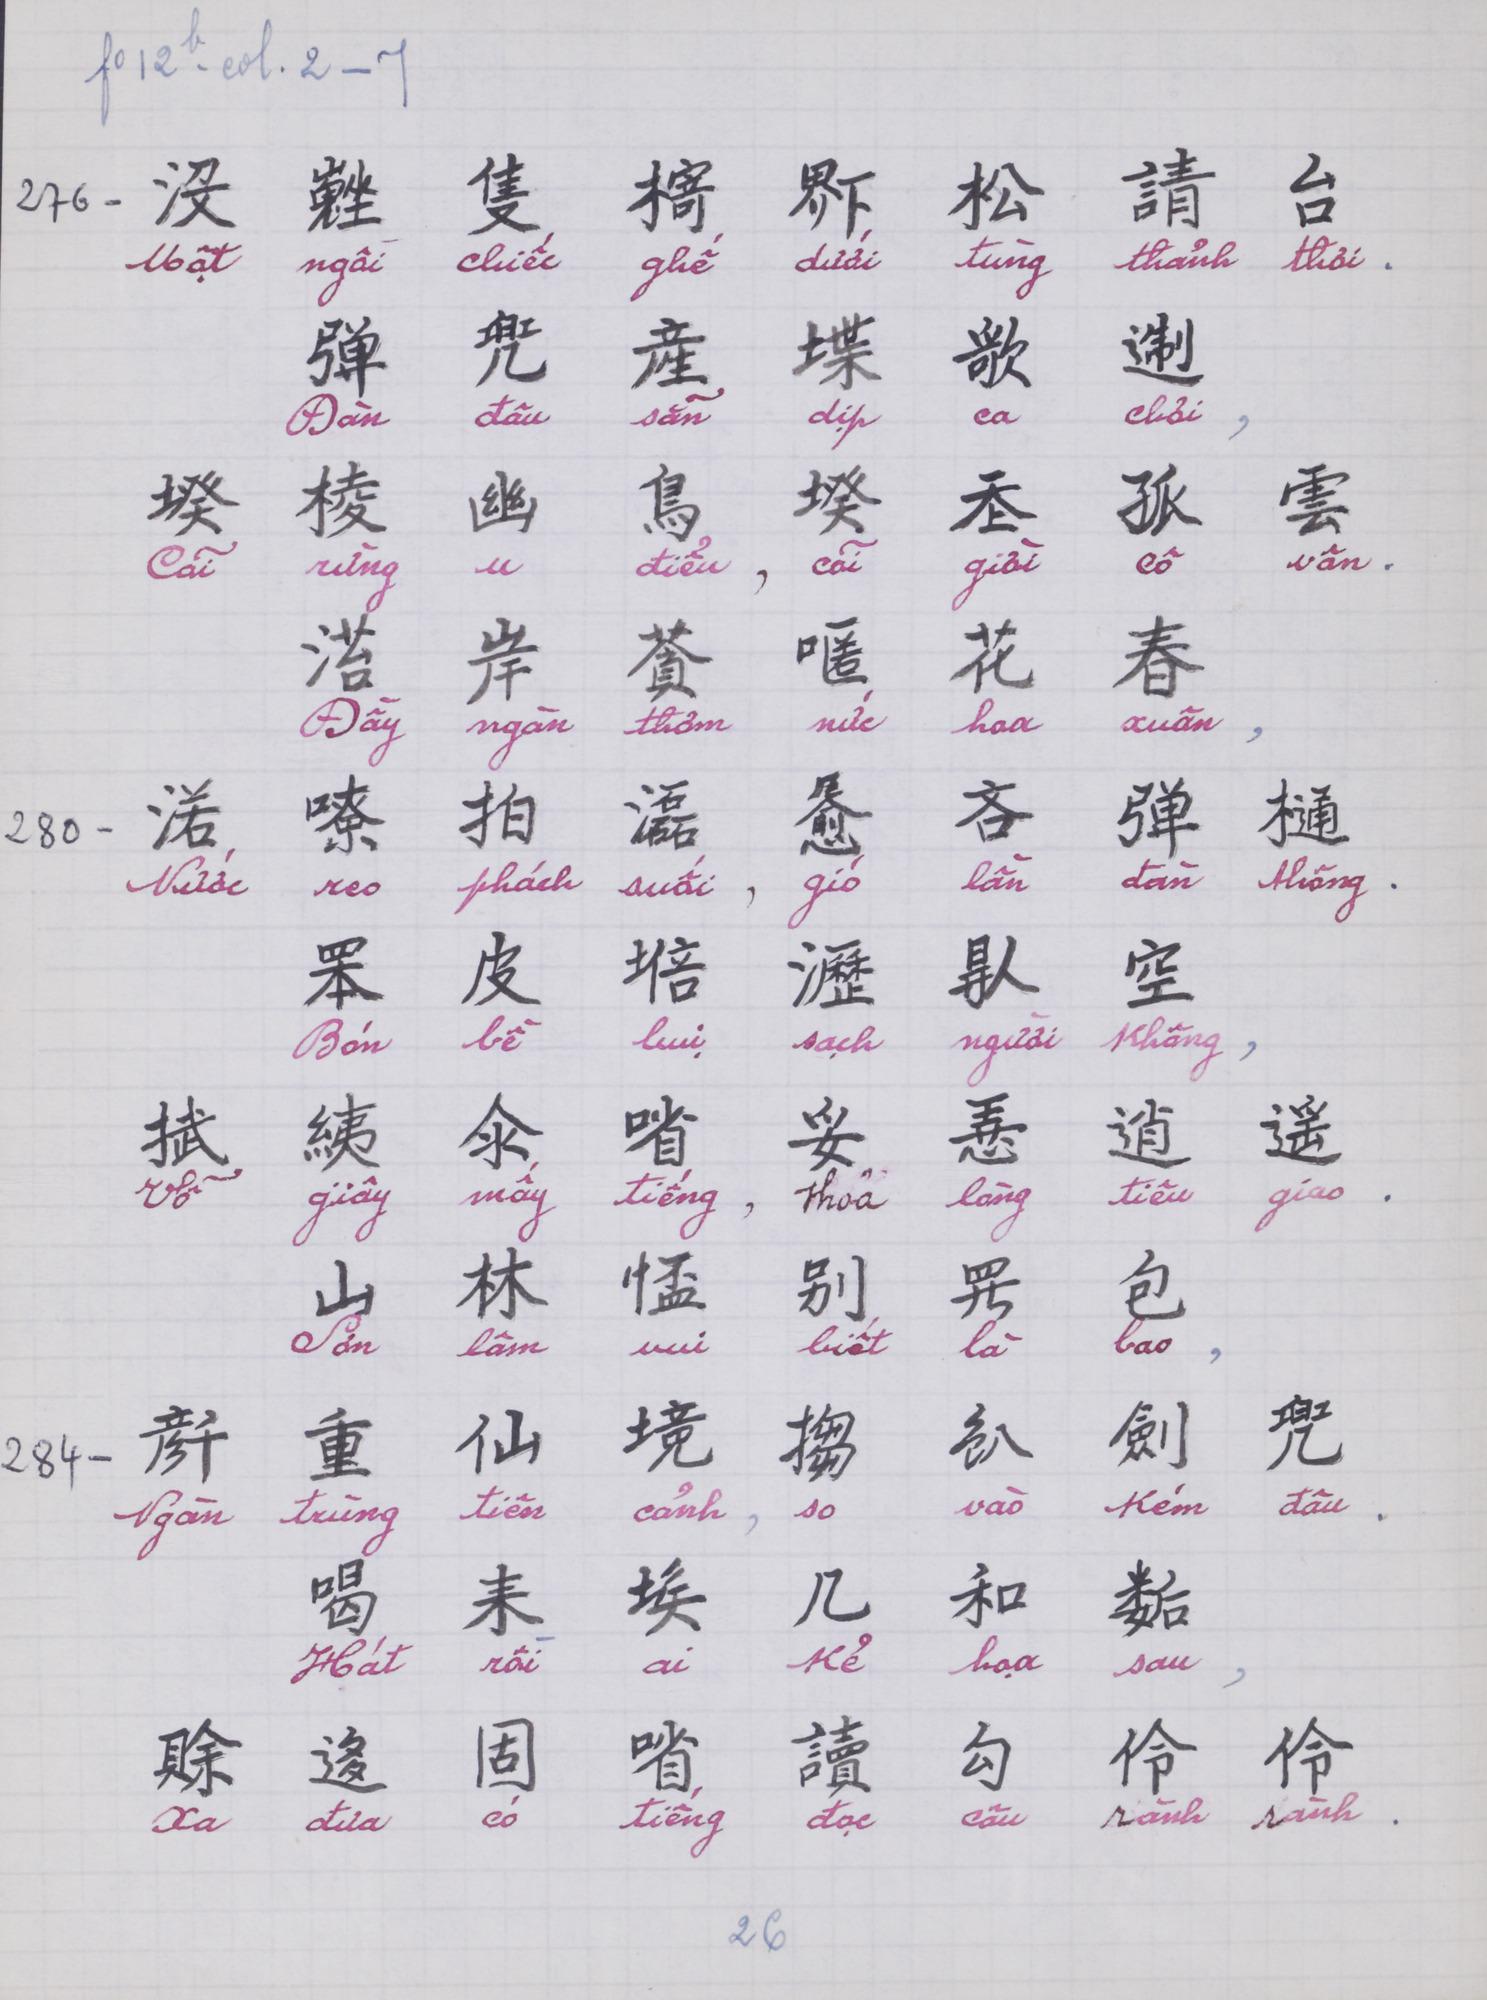 fo 12b. col. 2-7
276- 没 𡾵 隻 槣 𤲂 松 請 台
Một ngồi chiếc ghế dưới tùng thảnh thơi.
弹 兜 産 堞 歌 𨔾
Đàn đâu sẵn dịp ca chơi,
揆 棱 幽 鳥 揆 𡗶 孤 雲
Cõi rừng u điểu, cõi giời cô vân.
岸 花 春
Đầy ngàn thơm nức hoa xuân,
280- 渃 嘹 拍 𤀖 吝 弹 樋
Nước reo phách suối, gió lần đàn thông.
皮 培 瀝 𠊛 空
Bốn bề bụi sạch người không,
拭 絏 㗂 妥 𢚸 逍 遥
Vỗ giây mấy tiếng, thoả lòng tiêu giao.
山 林 𢝙 别 𱺵 包
Sơn lâm vui biết là bao,
𠦳 重 仙 境 搊 𠓨 劍 兜
Ngàn trùng tiên cảnh, so vào kém đâu.
284-
喝 耒 埃 几 和 𡢐
Hát rồi ai kẻ hoạ sau,
賒 迻 固 㗂 讀 勾 伶 伶
Xa đưa có tiếng đọc câu rành rành.
26